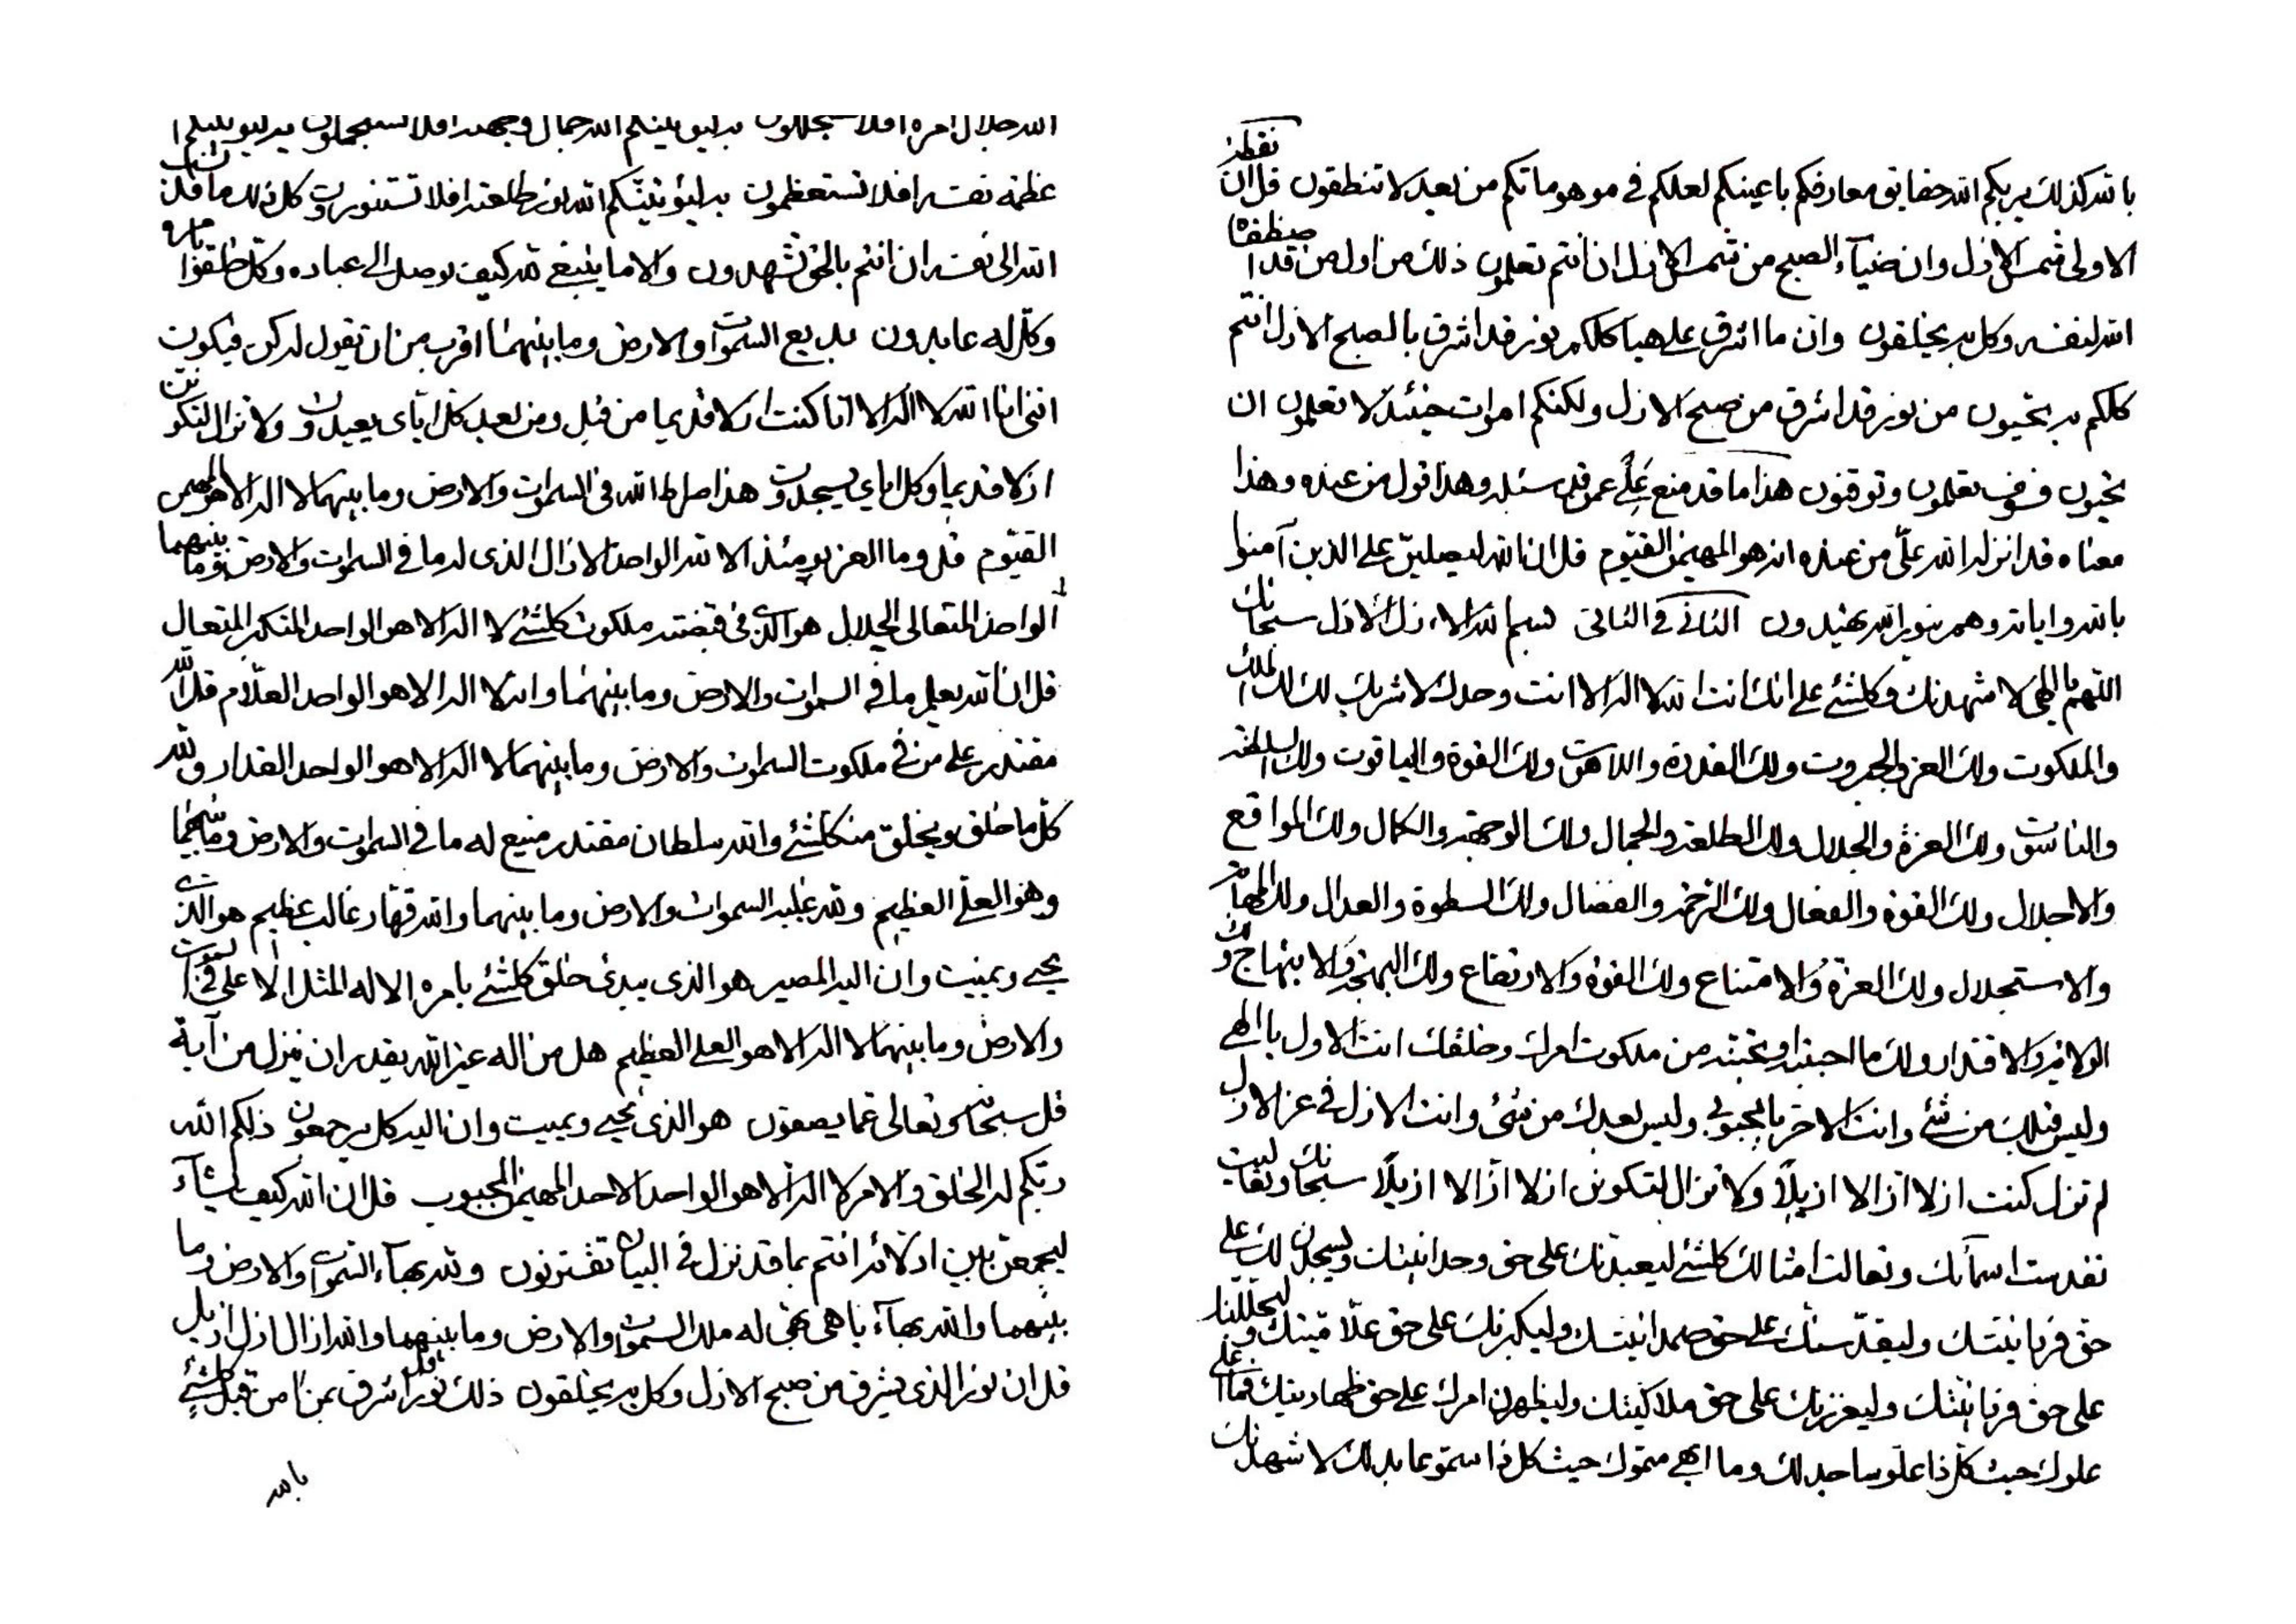 بالله كذلك يريكم الله حقايق معارفكم باعينكم لعلكم في موهوماتكم من بعد لا تنطقون قل ان نقطة
الاولى شمس الازل وان ضياء الصبح من شمس الازل ان انتم تعلمون ذلك من اول من قد اصطفاه
الله لنفسه وكل به يخلقون وان ما اشرق على هياكلكم نور قد اشرق بالصبح الازل انتم
كلكم به تحيون من نور قد اشرق من صبح الازل ولكنكم اموات حينئذ لا تعلمون ان
تحيون فسوف تعلمون وتوقنون هذا ما قد منع علي عمن قد سئله وهذا قول من عنده وهذا
معناه قد انزله الله علي من عنده انه هو المهيمن القيوم قل ان الله ليصلين على الذين آمنوا
بالله واياته وهم بنور الله يهتدون الثاني في الثاني بسم الله الازل الازل سبحانك
اللهم يا الهي لاشهدنك وكلشئ على انك انت الله لا اله الا انت وحدك لا شريك لك لك الملك
والملكوت ولك العز والجبروت ولك القدرة واللاهوت ولك القوة والياقوت ولك السلطنة
والناسوت ولك العزة والجلال ولك الطلعة والجمال ولك الوجهة والكمال ولك المواقع
والاجلال ولك القوة والفعال ولك الرحمة والفضال ولك السطوة والعدال ولك المهابة
والاستجلال ولك العزة والامتناع ولك القوة والارتفاع ولك البهجة والابتهاج ولك
الولاية والاقتدار ولك ما احببته او تحبنه من ملكوت امرك وخلقك انت الاول يا الهي
وليس قبلك من شئ وانت الاخر يا محبوبي وليس بعدك من شئ وانت الازل في عز الازل
لم تزل كنت ازلا آزالا ازيلاً ولا تزال لتكونن ازلا آزالا ازيلاً سبحانك وتعاليت
تقدست اسمآئك وتعالت امثالك كلشئ ليعبدنك على حق وحدانيتك وليسجدن لك على
حق فردانيتك وليقدسنك على حق صمدانيتك وليكبرنك على حق علاميتك وليجللنك
على حق فردانيتك وليعززنك على حق ملاكيتك وليظهرن امرك على حق ظهاريتك فما اعلى
علوك حيث كل ذا علو ساجد لك وما ابهى سموك حيث كل ذا سمو عابد لك لاشهدنك
الله جلال امره افلا تستجللون به ليوتينكم الله جمال وجهته افلا تستجملون به ليوتينكم
عظمة نفسه افلا تستعظمون به ليؤتينكم الله نور طلعته افلا تستنورون كل ذلك ما قد نسب
الله الى نفسه ان انتم بالحق تشهدون والا ما ينبغي لله كيف يوصل الى عباده وكل خلقوا بامره
وكل له عابدون بديع السموات والارض وما بينهما اقرب من ان يقول له كن فيكون
انني انا الله لا اله الا انا كنت ازلا قديما من قبل ومن بعد كل اياي يعبدون ولا نزال لنكونن
ازلا قديما وكل اياي يسجدون هذا صراط الله في السموات والارض وما بينهما لا اله الا هو المهيمن
القيوم قل وما العز يومئذ الا لله الواحد الازال الذي له ما في السموات والارض وما بينهما
الواحد المتعالي الجلال هو الذي في قبضته ملكوت كلشئ لا اله الا هو الواحد المتكبر المتعال
قل ان الله يعلم ما في السموات والارض وما بينهما وانه لا اله الا هو الواحد العلام قل الله
مقتدر على من في ملكوت السموات والارض وما بينهما لا اله الا هو الواحد القدار ولله
كل ما خلق ويخلق من كلشئ والله سلطان مقتدر منيع له ما في السموات والارض وما بينهما
وهو العلي العظيم ولله غلبة السموات والارض وما بينهما والله قهار غالب عظيم هو الذي
يحيي ويميت وان اليه المصير هو الذي يبدئ خلق كلشئ بامره الا له المثل الاعلى في السموات
والارض وما بينهما لا اله الا هو العلي العظيم هل من اله غير الله يقدر ان ينزل من آية
قل سبحانه وتعالى عما يصفون هو الذي يحيي ويميت وان اليه كل يرجعون ذلكم الله
ربكم له الخلق والامر لا اله الا هو الواحد الاحد المهيمن المحبوب قل ان الله كيف يشآء
ليجمعن بين ادلائه انتم بما قد نزل في البيان تقترنون ولله بهآء السموات والارض وما
بينهما والله بهآء باهي بهي له ملك السموات والارض وما بينهما والله ازال ازل ازيل
قل ان نور الذي يشرق من صبح الازل وكل به يخلقون ذلك نور اول اشرق بمن امن قبل كلشئ
بالله